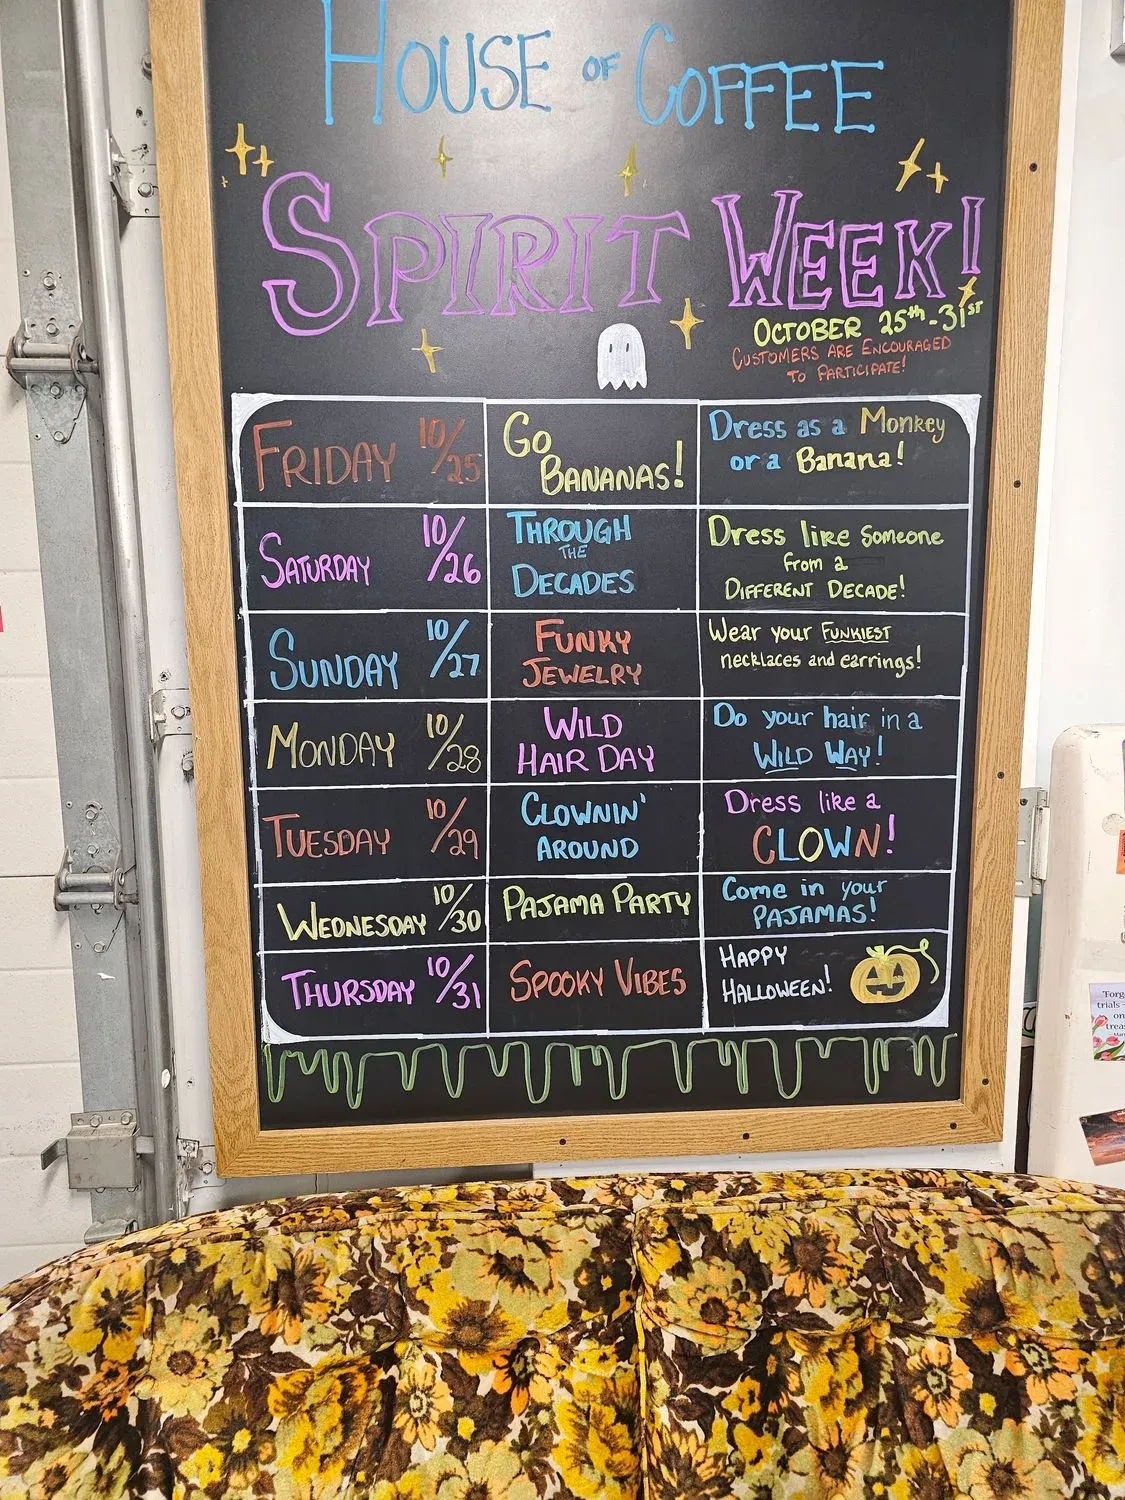 HOUSE OF COFFEE
SPIRIT WEEK!
OCTOBER 25th-31ST
CUSTOMERS ARE ENCOURAGED
TO PARTICIPATE!
FRIDAY 10/25
GO
BANANAS!
Dress as a Monkey
or a Banana!
SATURDAY 10/26
THROUGH
THE
DECADES
Dress like Someone
from a
DIFFERENT DECADE!
SUNDAY 10/27
FUNKY
JEWELRY
Wear your FUNKIEST
necklaces and earrings!
MONDAY 10/28
WILD
HAIR DAY
Do your hair in a
WILD WAY!
TUESDAY 10/29
CLOWNIN'
AROUND
Dress like a
CLOWN!
WEDNESDAY 10/30
PAJAMA PARTY
Come in your
PAJAMAS!
THURSDAY 10/31
SPOOKY VIBES
HAPPY
HALLOWEEN!
"Forg
trials
on
treas